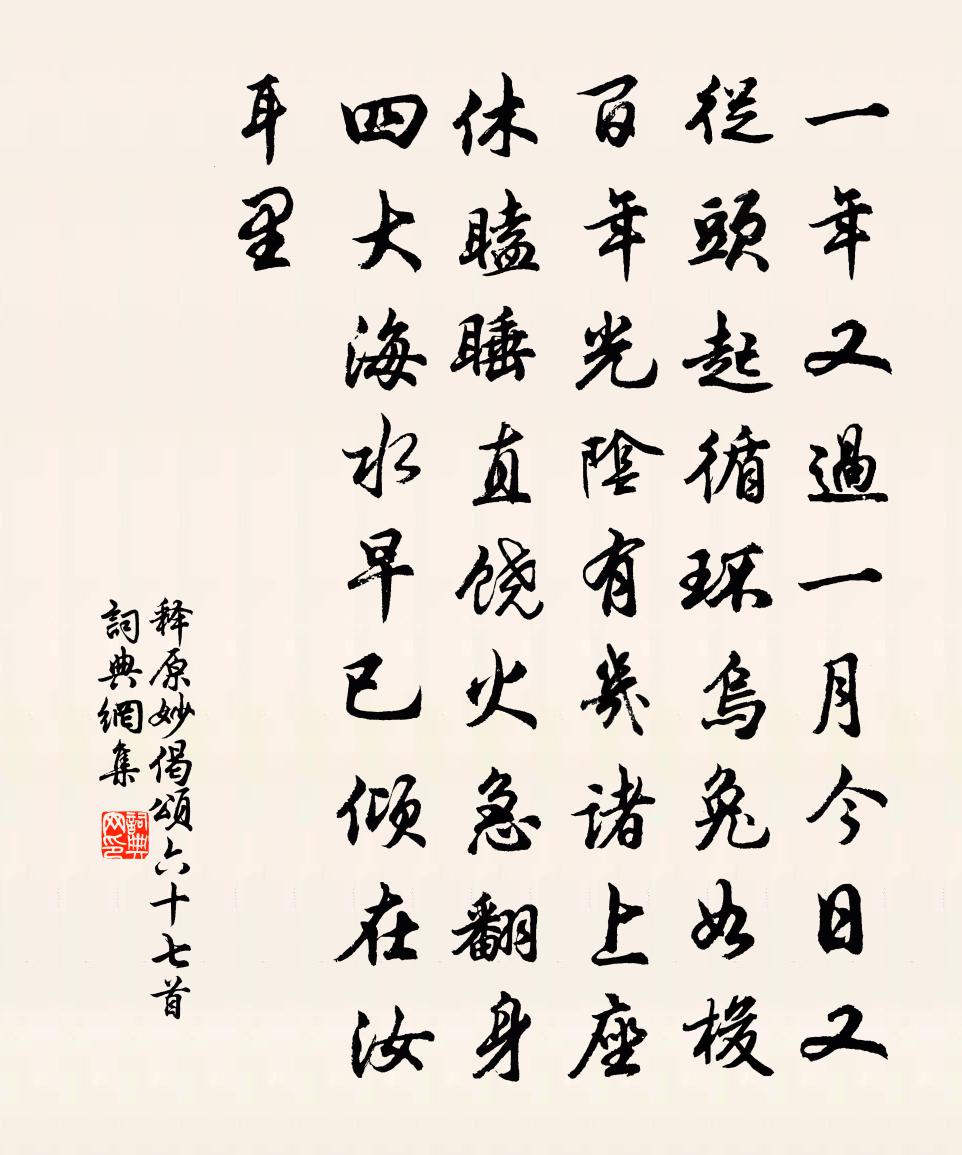 一年又過一月今日又
從頭起循环烏兔如梭
百年光陰有幾诸上座
休瞌睡直饶火急翻身
四大海水早已倾在汝
耳里
释原妙偈頌六十七首
詞典網集
詞典
网印